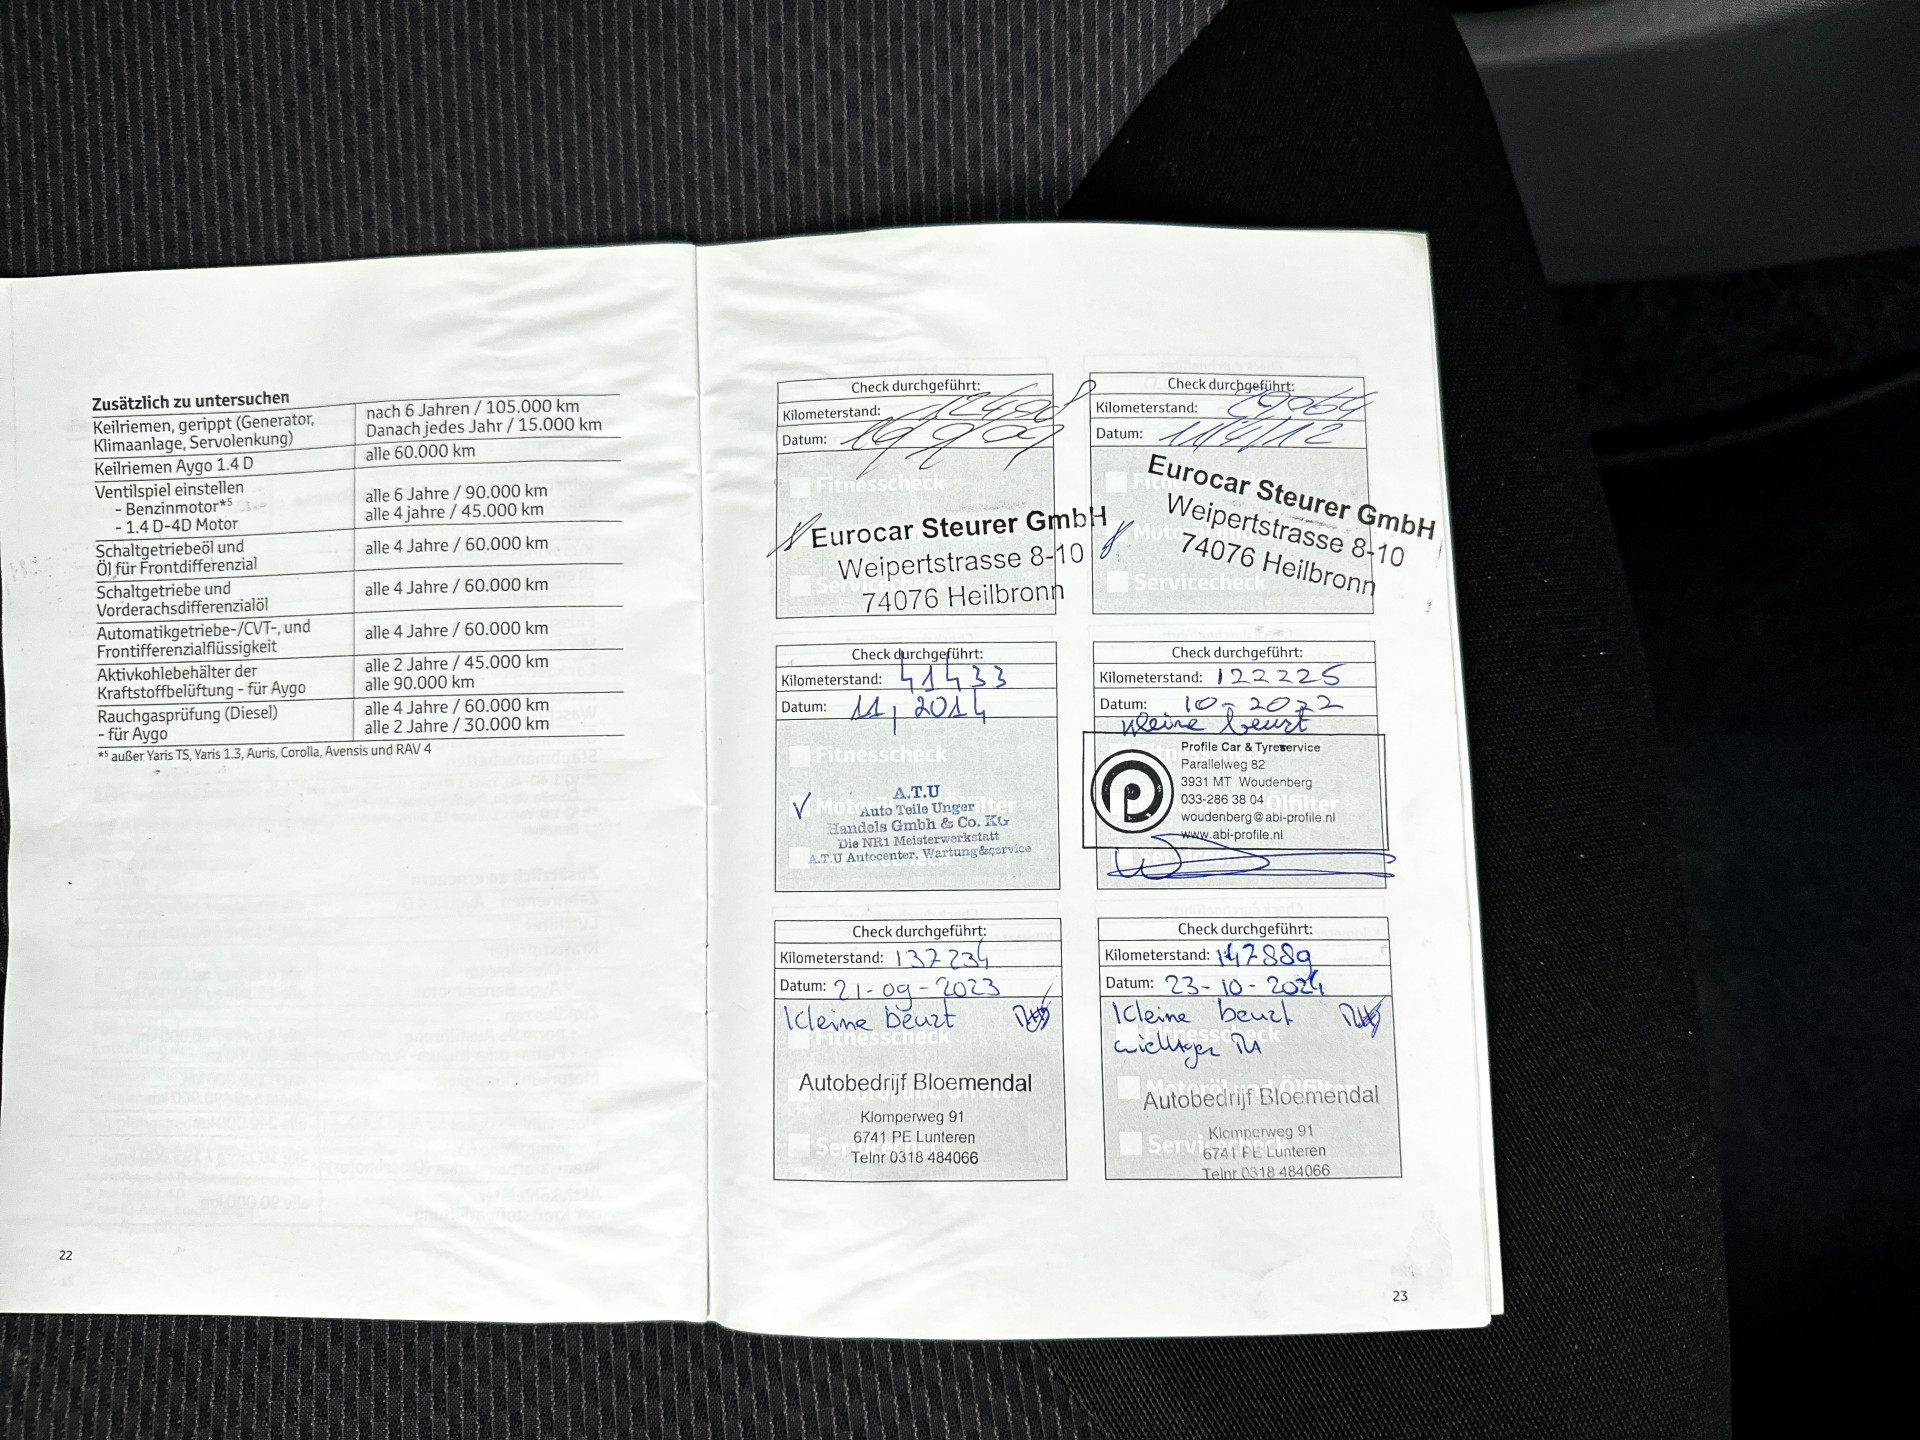 Zusätzlich zu untersuchen
Keilriemen, gerippt (Generator, Klimaanlage, Servolenkung)
nach 6 Jahren / 105.000 km
Danach jedes Jahr / 15.000 km
Keilriemen Aygo 1.4 D
alle 60.000 km
Ventilspiel einstellen
- Benzinmotor*5
alle 6 Jahre / 90.000 km
- 1.4 D-4D Motor
alle 4 jahre / 45.000 km
Schaltgetriebeöl und
Öl für Frontdifferenzial
alle 4 Jahre / 60.000 km
Schaltgetriebe und
Vorderachsdifferenzialöl
alle 4 Jahre / 60.000 km
Automatikgetriebe-/CVT-, und
Frontifferenzialflüssigkeit
alle 4 Jahre / 60.000 km
Aktivkohlebehälter der
Kraftstoffbelüftung - für Aygo
alle 2 Jahre / 45.000 km
alle 90.000 km
Rauchgasprüfung (Diesel)
- für Aygo
alle 4 Jahre / 60.000 km
alle 2 Jahre / 30.000 km
*5 außer Yaris TS, Yaris 1.3, Auris, Corolla, Avensis und RAV 4
22
Check durchgeführt:
Kilometerstand:
Datum:
Fitnesscheck
Eurocar Steurer GmbH
Weipertstrasse 8-10
74076 Heilbronn
Check durchgeführt:
Kilometerstand:
Datum: 11/4/12
Eurocar Steurer GmbH
Weipertstrasse 8-10
74076 Heilbronn
Servicecheck
Check durchgeführt:
Kilometerstand: 41433
Datum: 11, 2014
Fitnesscheck
A.T.U
Auto Teile Unger
Handels Gmbh & Co. KG
Die NR1 Meisterwerkstatt
A.T.U Autocenter, Wartung&service
Check durchgeführt:
Kilometerstand: 122225
Datum: 10-2022
Kleine beurt
Profile Car & Tyreservice
Parallelweg 82
3931 MT Woudenberg
033-286 38 04
woudenberg@abi-profile.nl
www.abi-profile.nl
Servicecheck
Check durchgeführt:
Kilometerstand: 137234
Datum: 21-09-2023
Kleine beurt
Fitnesscheck
Autobedrijf Bloemendal
Klomperweg 91
6741 PE Lunteren
Telnr 0318 484066
Check durchgeführt:
Kilometerstand: 147889
Datum: 23-10-2024
Kleine beurt
Fitnesscheck
Motoröl und Ölfilter
Autobedrijf Bloemendal
Klomperweg 91
6741 PE Lunteren
Servicecheck
Telnr 0318 484066
23